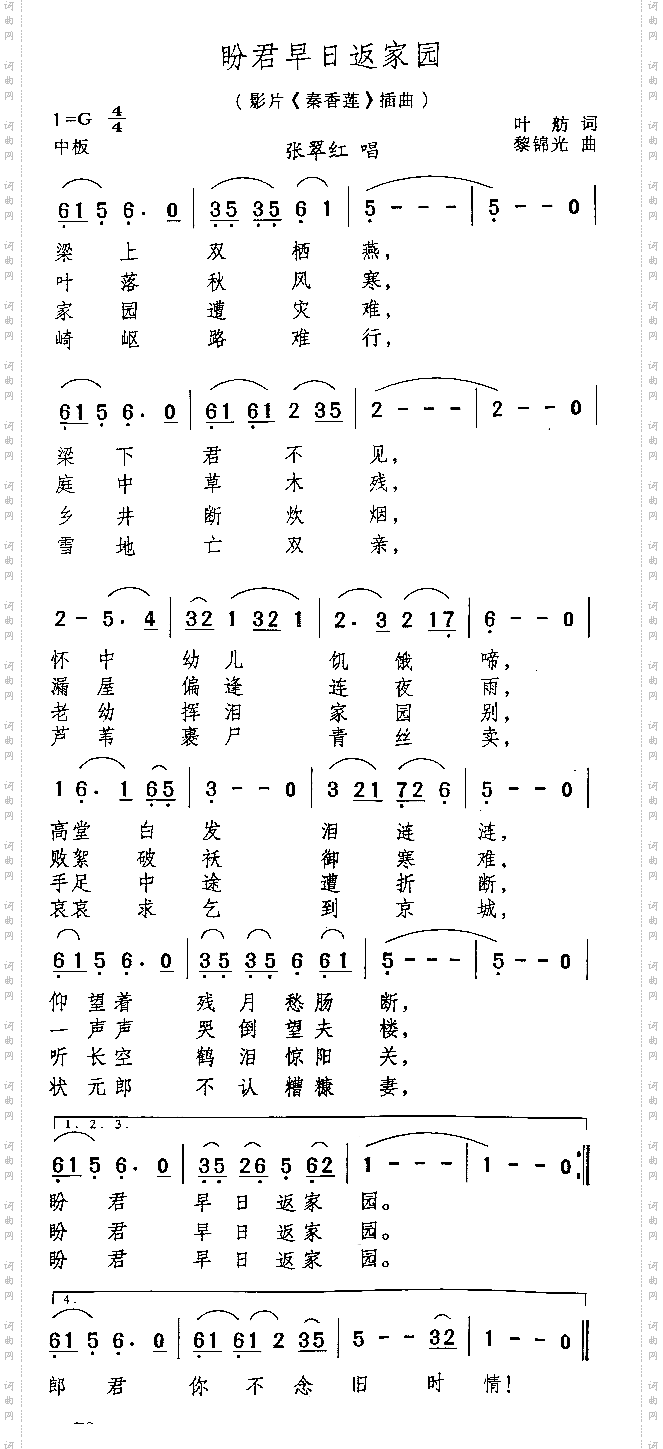 盼君早日返家园
（影片《秦香莲》插曲）
1=G 4/4
中板
张翠红 唱
叶舫 词
黎锦光 曲
615 6. 0 | 35 35 6 1 | 5 - - - | 5 - - 0 |
梁上双栖燕，
叶落秋风寒，
家园遭灾难，
崎岖路难行，
615 6. 0 | 61 61 2 35 | 2 - - - | 2 - - 0 |
梁下君不见，
庭中草木残，
乡井断炊烟，
雪地亡双亲，
2 - 5. 4 | 32 1 32 1 | 2. 3 2 17 | 6 - - 0 |
怀中幼儿饥饿啼，
漏屋偏逢连夜雨，
老幼挥泪家园别，
芦苇裹尸青丝卖，
1 6. 1 65 | 3 - - 0 | 3 21 72 6 | 5 - - 0 |
高堂白发泪涟涟，
败絮破袄御寒难，
手足中途遭折断，
哀哀求乞到京城，
615 6. 0 | 35 35 6 61 | 5 - - - | 5 - - 0 |
仰望着残月愁肠断，
一声声哭倒望夫楼，
听长空鹤泪惊阳关，
状元郎不认糟糠妻，
1. 2. 3.
615 6. 0 | 35 26 5 62 | 1 - - - | 1 - - 0 :||
盼君早日返家园。
盼君早日返家园。
盼君早日返家园。
4.
615 6. 0 | 61 61 2 35 | 5 - - 32 | 1 - - 0 ||
郎君你不念旧时情！
词曲网